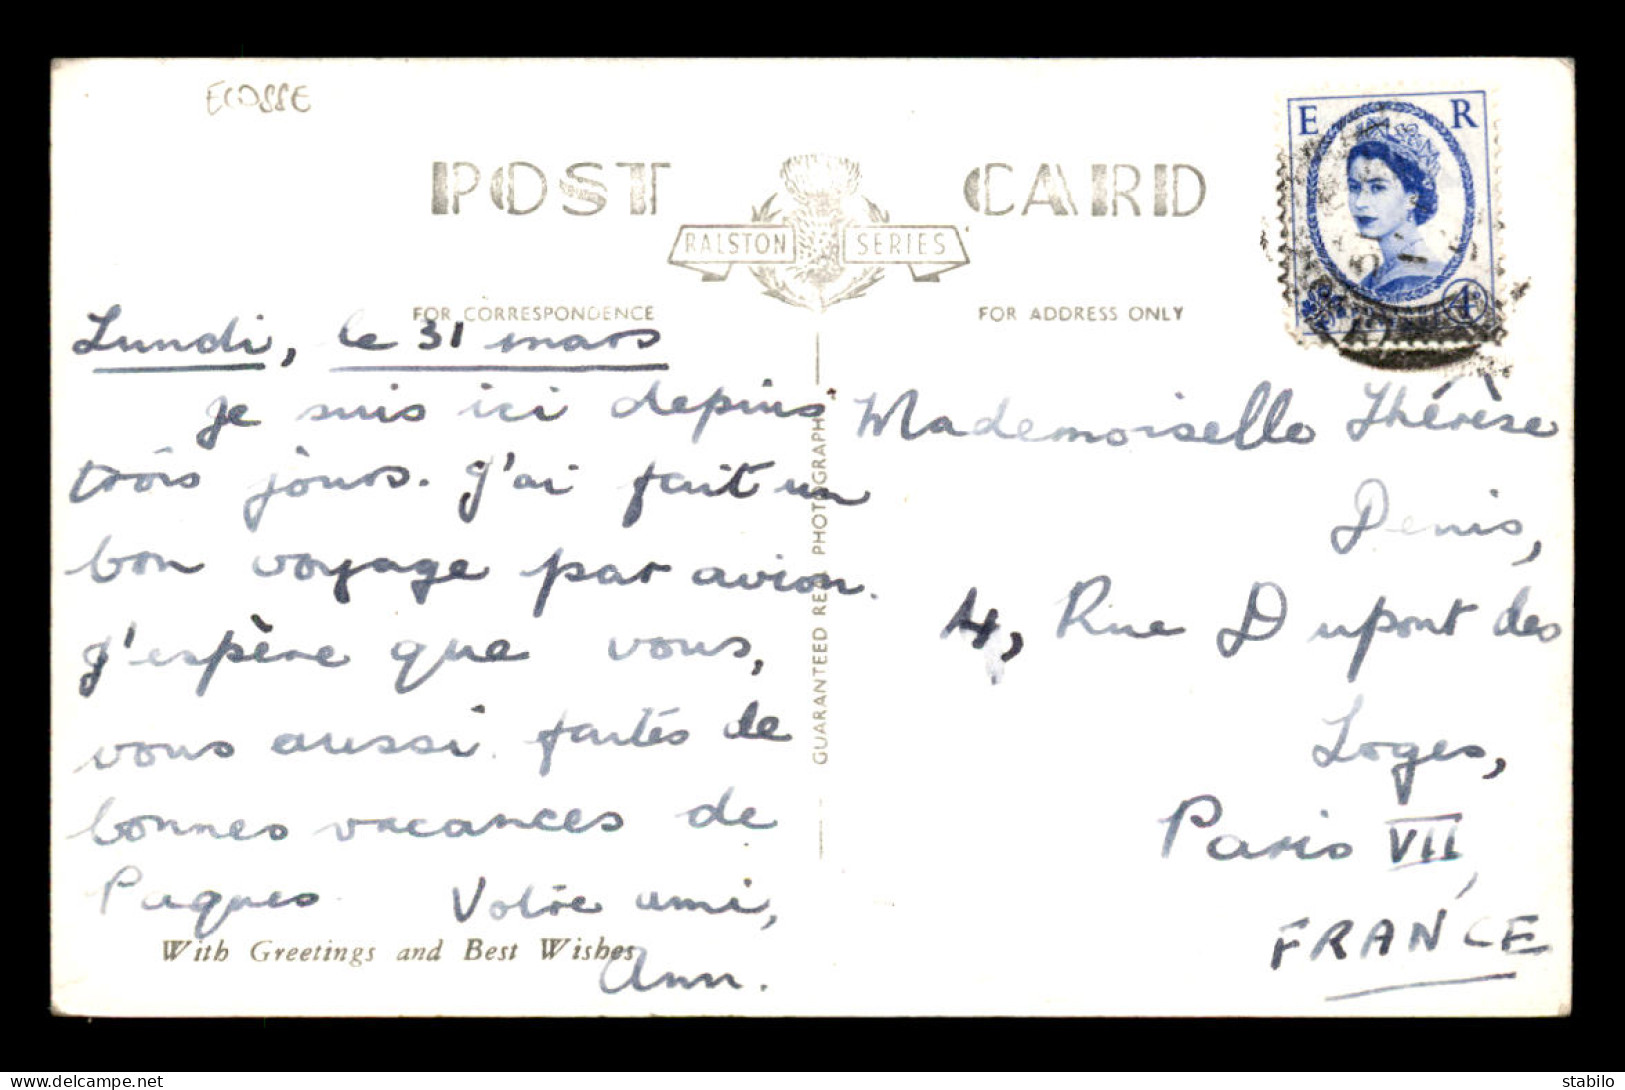 ECOSSE
POST CARD
RALSTON SERIES
FOR CORRESPONDENCE
FOR ADDRESS ONLY
E R
4D
Lundi, le 31 mars
Je suis ici depuis
trois jours. J'ai fait un
bon voyage par avion.
J'espère que vous,
vous aussi faites de
bonnes vacances de
Paques Votre ami,
Ann.
With Greetings and Best Wishes
GUARANTEED REAL PHOTOGRAPH
Mademoiselle Thérèse
Denis,
4, Rue Dupont des
Loges,
Paris VII,
FRANCE
stabilo